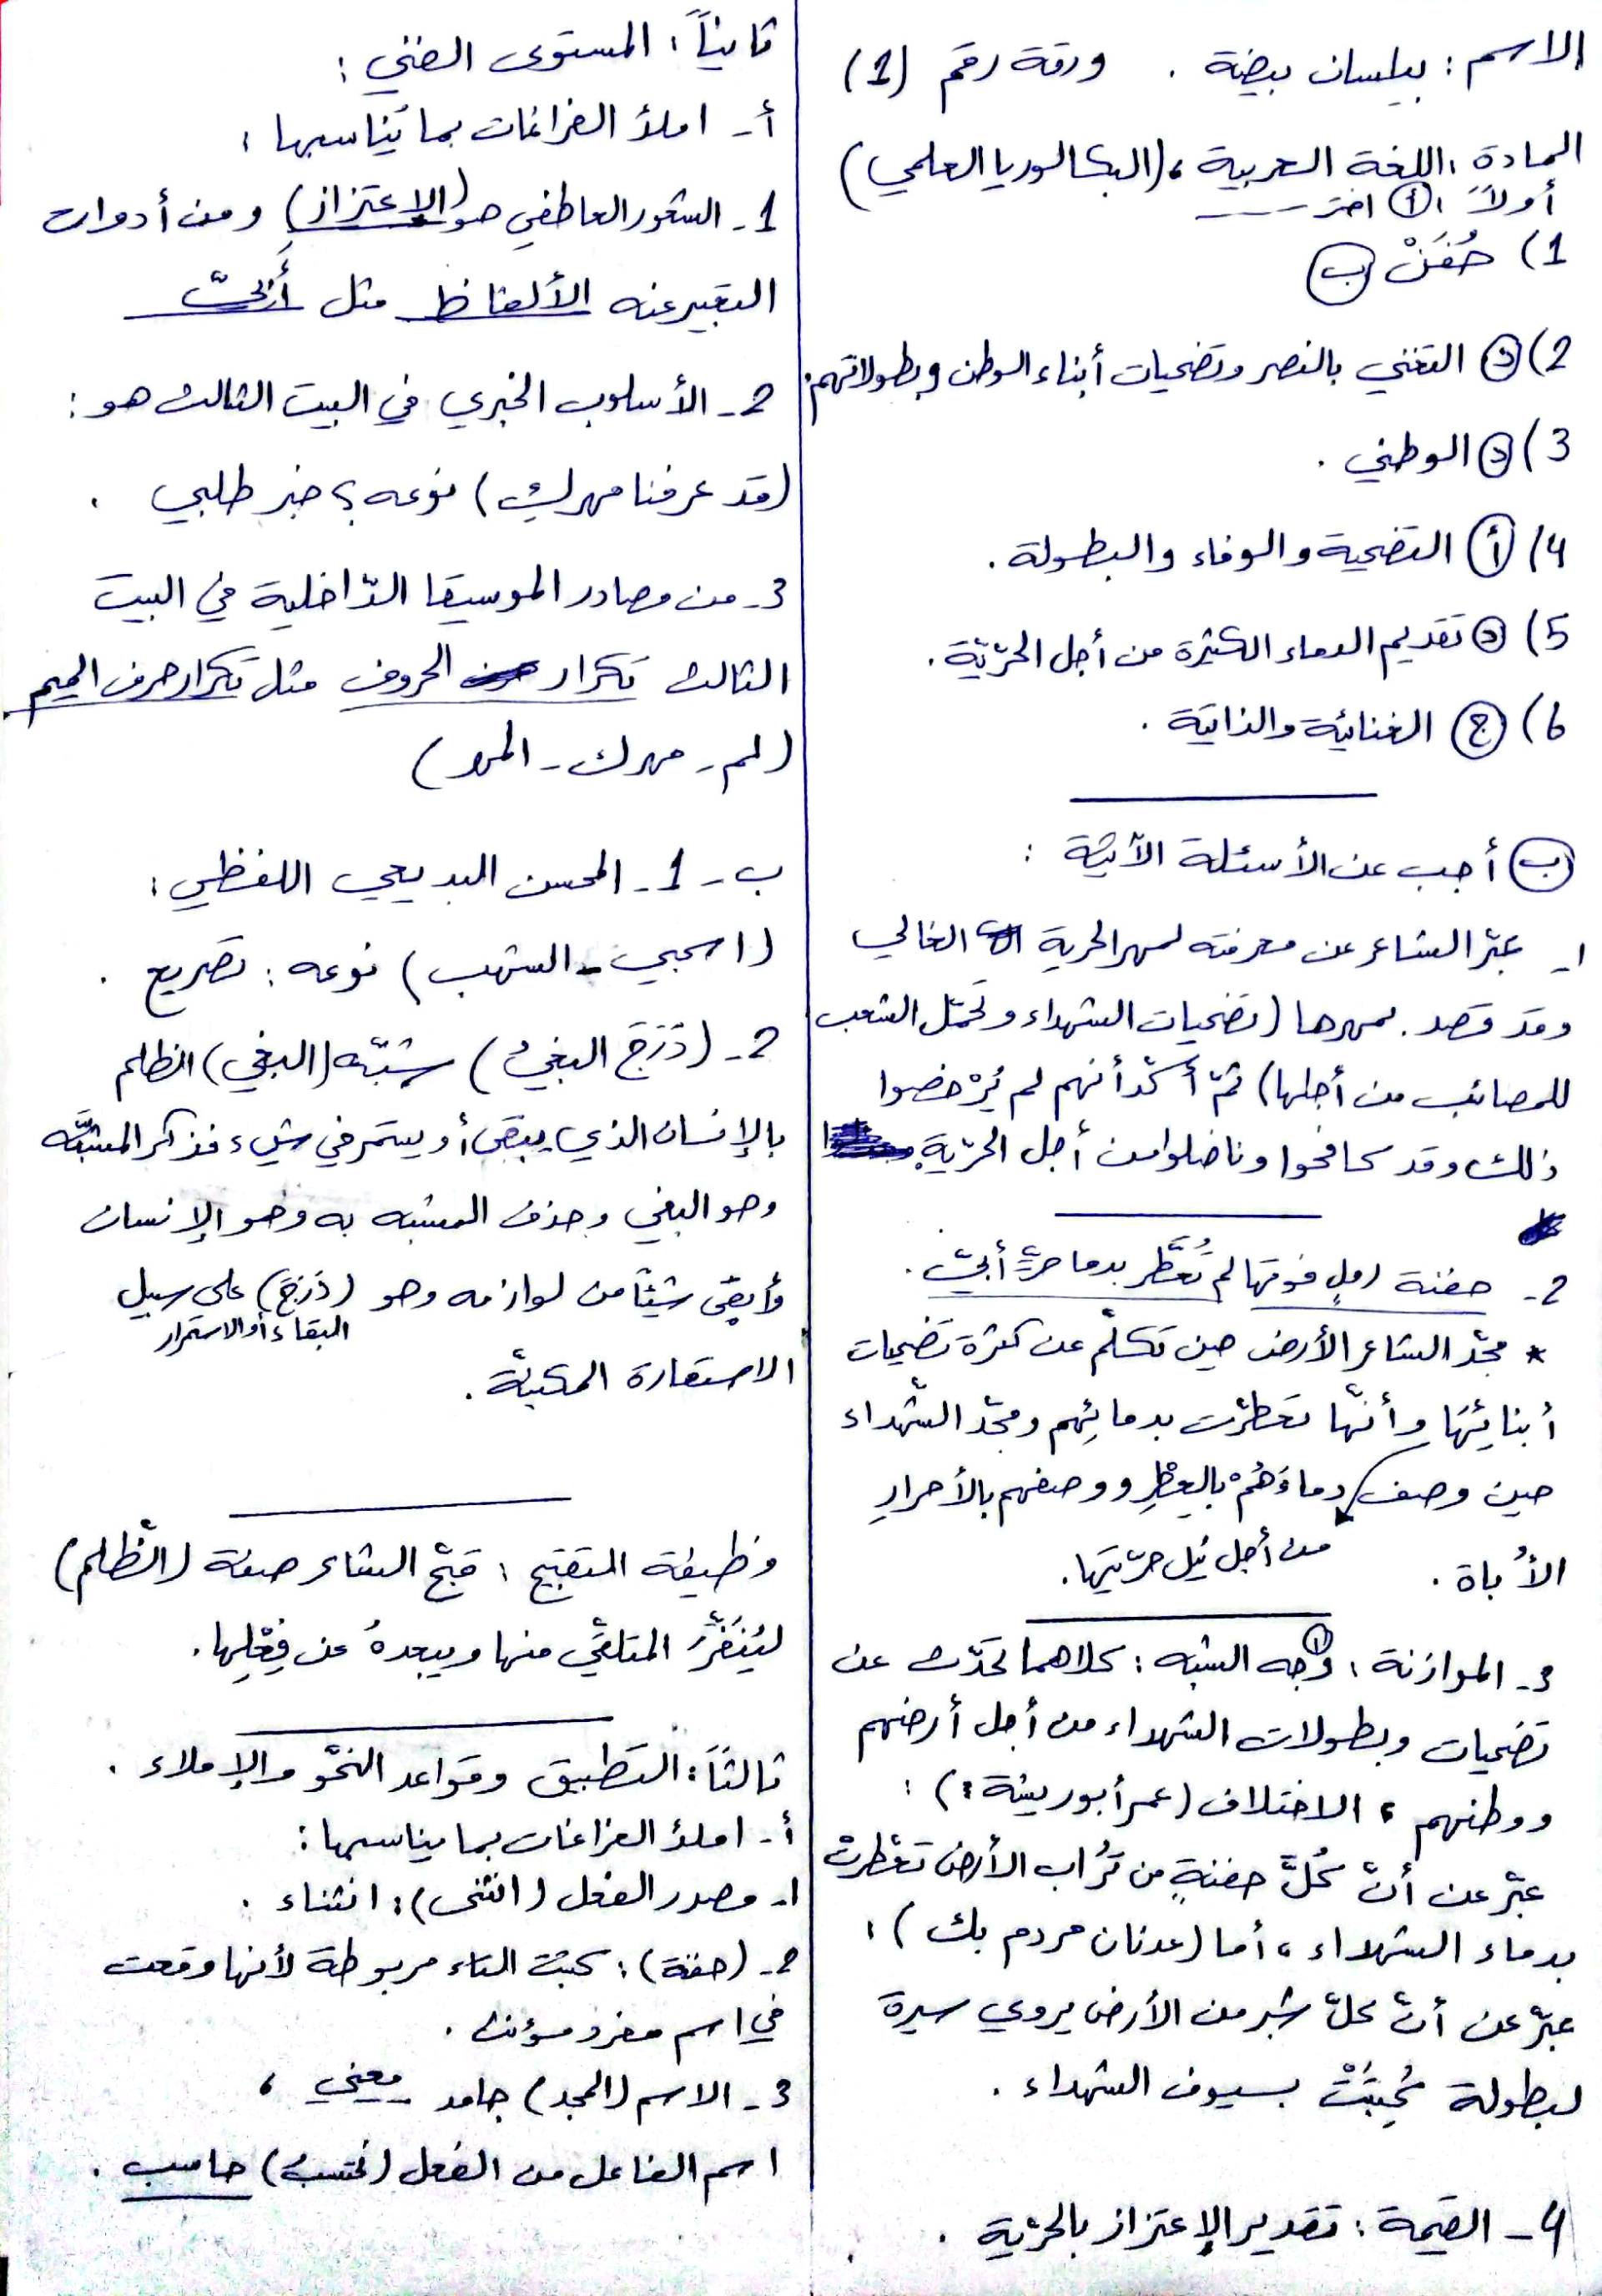 الاسم : بيلسان بيضة . ورقة رقم (1)
المادة : اللغة العربية ، (البكالوريا العلمي)
أولاً : أ اختر
1) حُفَنْ ب
2) د التغني بالنصر وتضحيات أبناء الوطن وبطولاتهم .
3) د الوطني .
4) أ التضحية والوفاء والبطولة .
5) د تقديم الدماء الكثيرة من أجل الحرّيّة .
6) ج الغنائية والذاتية .
ب أجب عن الأسئلة الآتية :
1- عبّر الشاعر عن معرفته لمهر الحرية الغالي
وقد قصد بمهرها (تضحيات الشهداء وتحمّل الشعب
للمصائب من أجلها) ثمّ أكّد أنهم لم يُرْخصوا
ذلك وقد كافحوا وناضلوا من أجل الحرّية .
2- حفنة رملٍ فوقها لم تُعَطَّر بدما حرٍّ أبيّ .
* مجّد الشاعر الأرض حين تكلّم عن كثرة تضحيات
أبنائِهَا وأنّها تعطّرت بدمائِهم ومجّد الشّهداء
حين وصف دماءَهُمْ بالعِطْرِ ووصفهم بالأحرارِ
الأُباة . من أجل نيل حرّيتها .
3- الموازنة : 1 وجه الشبه : كلاهما تحدّث عن
تضحيات وبطولات الشهداء من أجل أرضهم
ووطنهم ، الاختلاف (عمر أبو ريشة) :
عبّر عن أنّ كُلّ حفنةٍ من تُراب الأرض تعطّرت
بدماء الشهداء ، أما (عدنان مردم بك) :
عبّر عن أنّ كلّ شبر من الأرض يروي سيرة
لبطولة كُتِبَتْ بسيوف الشهداء .
4- القيمة : تقدير الإعتزاز بالحرّية .
ثانياً : المستوى الفني :
أ- املأ الفراغات بما يُناسبها :
1- الشعور العاطفي هو (الإعتزاز) ومن أدوات
التعبير عنه الألفاظ مثل أبيّ
2- الأسلوب الخبري في البيت الثالث هو :
(قد عرفنا مهرك) نوعه ؟ خبر طلبي .
3- من مصادر الموسيقا الدّاخلية في البيت
الثالث تكرار الحروف مثل تكرار حرف الميم
(لم - مهرك - المهر)
ب - 1- المحسن البديعي اللفظي :
(اسحبي - الشهب) نوعه : تصريع .
2- (دَرَجَ البغيُ) شبّه (البغي) الظلم
بالإنسان الذي يبقى أو يستمر في شيء فذكر المشبّه
وهو البغي وحذف المشبه به وهو الإنسان
وأبقى شيئاً من لوازمه وهو (دَرَجَ) على سبيل
البقاء أو الاستمرار
الاستعارة المكنيّة .
وظيفة التقبيح : قبّح الشاعر صفة (الظّلم)
ليُنَفِّرَ المتلقّي منها ويبعدهُ عن فِعْلِها .
ثالثاً : التطبيق وقواعد النحو والإملاء .
أ- املأ الفراغات بما يناسبها :
1- مصدر الفعل (انثنى) : انثناء .
2- (حفنة) : كتبت التاء مربوطة لأنها وقعت
في اسم مفرد مؤنث .
3- الاسم (المجد) جامد معنى ،
اسم الفاعل من الفعل (تحتسب) حاسب .